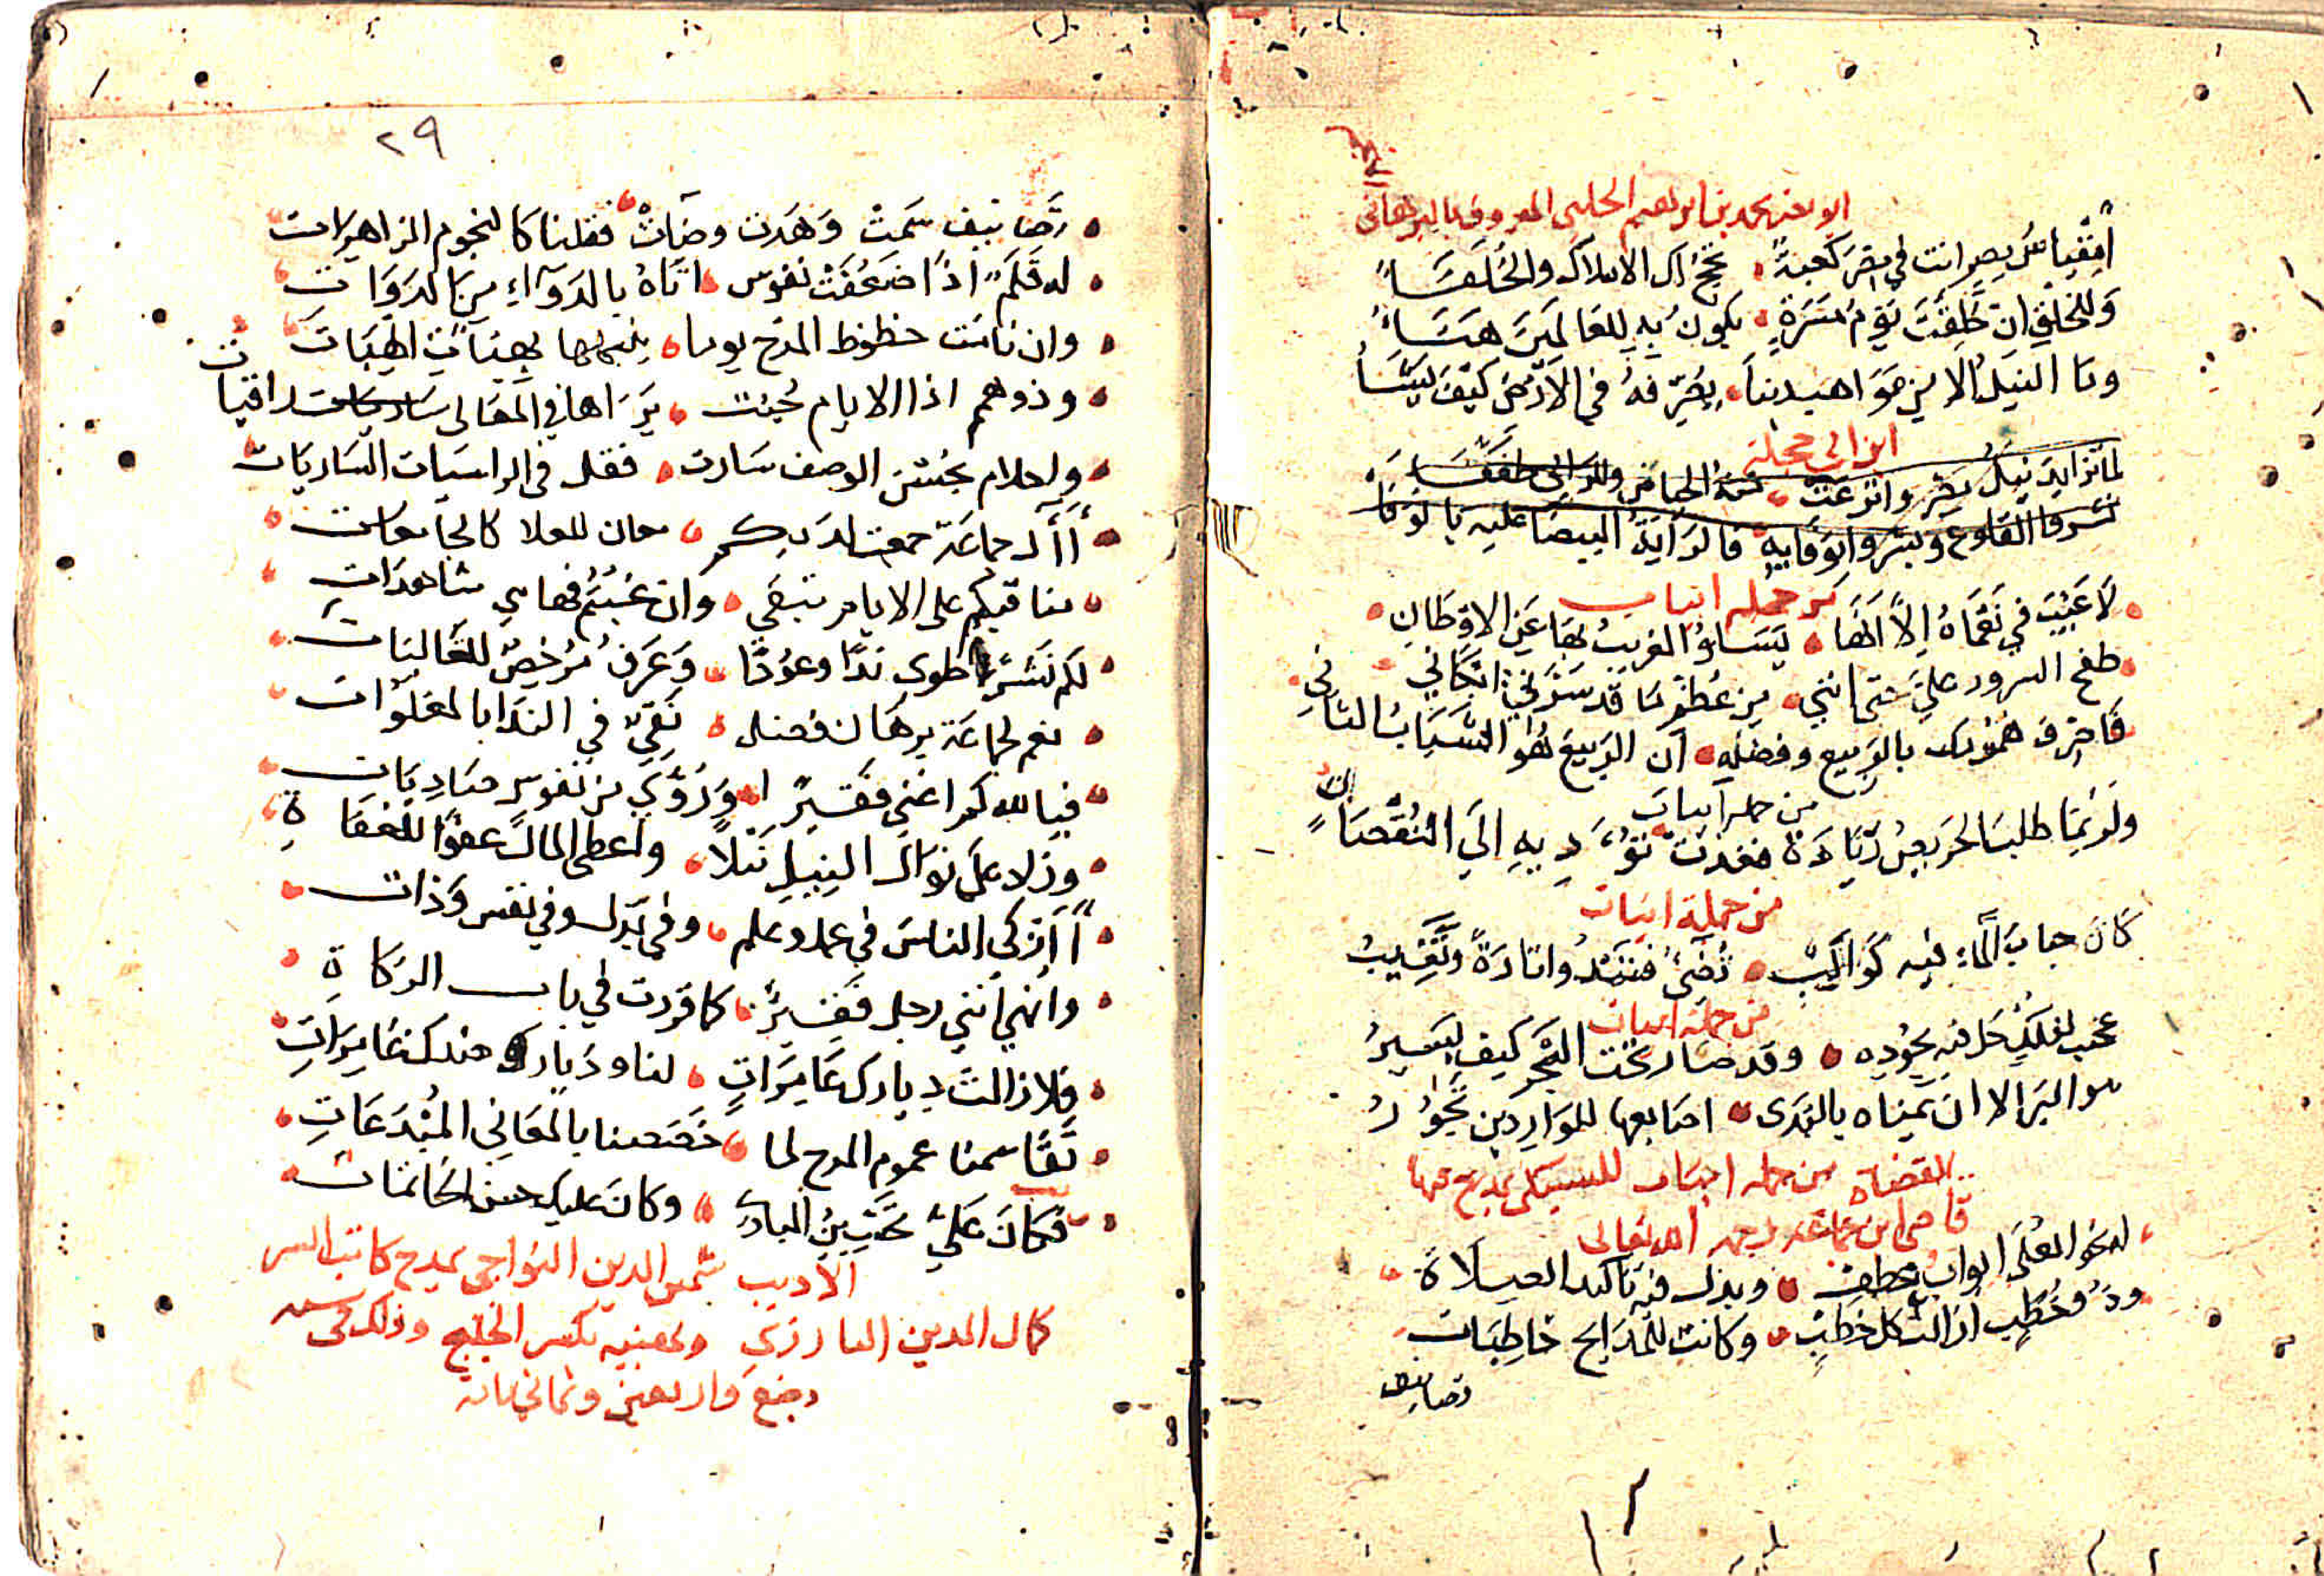 محمد بن ابراهيم الحلبي المعروف بالبرهاني
انت في مصر كعبة تحج الاملاك والخلفاء
وللخلق ان خلقت يوم مسرة يكون به للعالمين هناء
وما النيل الا من مواهبنا يصرفه في الارض كيف يشاء
ابن ابي حجلة
لما تزايد نيل مصر واترعت منه الحياض
القلوع وبشروا بوفايه فالراية البيضا عليه بالوفا
من جملة ابيات
لا عيب في نعماه الا انها يسلو الغريب بها عن الاوطان
طفح السرور علي حتى انني من عظم ما قد سرني ابكاني
فاصرف همومك بالربيع وفضله ان الربيع هو الشباب الثاني
من جملة ابيات
ولربما طلب الحريص زيادة فغدت تؤديه الي النقصان
من جملة ابيات
كان حباب الماء فيه كواكب تضيء فتبدو تارة وتغيب
من جملة ابيات
عجبت لفلك حل فيه بجوده وقد صار تحت البحر كيف يسير
هو البر الا ان يمناه بالندى اصابعها للواردين بحور
من جملة ابيات للسبكي يمدح بها
القضاة
قاضي ابن جماعة رحمه الله تعالى
له نحو العلى ابواب عطف وبذل فيه تاكيد الصلاة
وذو خطب ازالت كل خطب وكانت للمدايح خاطبات
تصانيف
٢٩
تصانيف سمت وهدت وضات فقلنا كالنجوم الزاهرات
له قلم اذا ضعفت نفوس اتاه بالدواء من الدوات
وان نامت حظوظ المدح يوما ينبهها بهبات الهبات
وذو همم اذا الايام يراها في المعالي ساريات راقيات
واحلام بحسن الوصف سارت فقل في الراسيات الساريات
أآل جماعة جمعت لديكم معان للعلا كالجامعات
مناقبكم على الايام تبقى وان غبتم فها هي شاهدات
لكم نشر طوى ندا وعودا وعرف مرخص للغاليات
نعم لجماعة برهان فضل نقي في الندا بالمعلوات
فيا لله كم اغنى فقيرا وروي من نفوس صاديات
وزاد على نوال النيل نيلا واعطى المال عفوا للعفاة
أأزكى الناس في عمل وعلم وفي بذل وفي نفس وذات
وانهي انني رجل فقير كما قررت في باب الزكاة
فلا زالت ديارك عامرات لنا وديار ضدك غامرات
تقاسمنا عموم المدح لما خصصنا بالمعاني المبدعات
فكان علي حسن المبادي وكان عليك حسن الخاتمات
الاديب شمس الدين النواجي يمدح كاتب السر
كمال الدين البارزي ويهنيه بكسر الخليج وذلك في سنة
بضع واربعين وثماني مائة